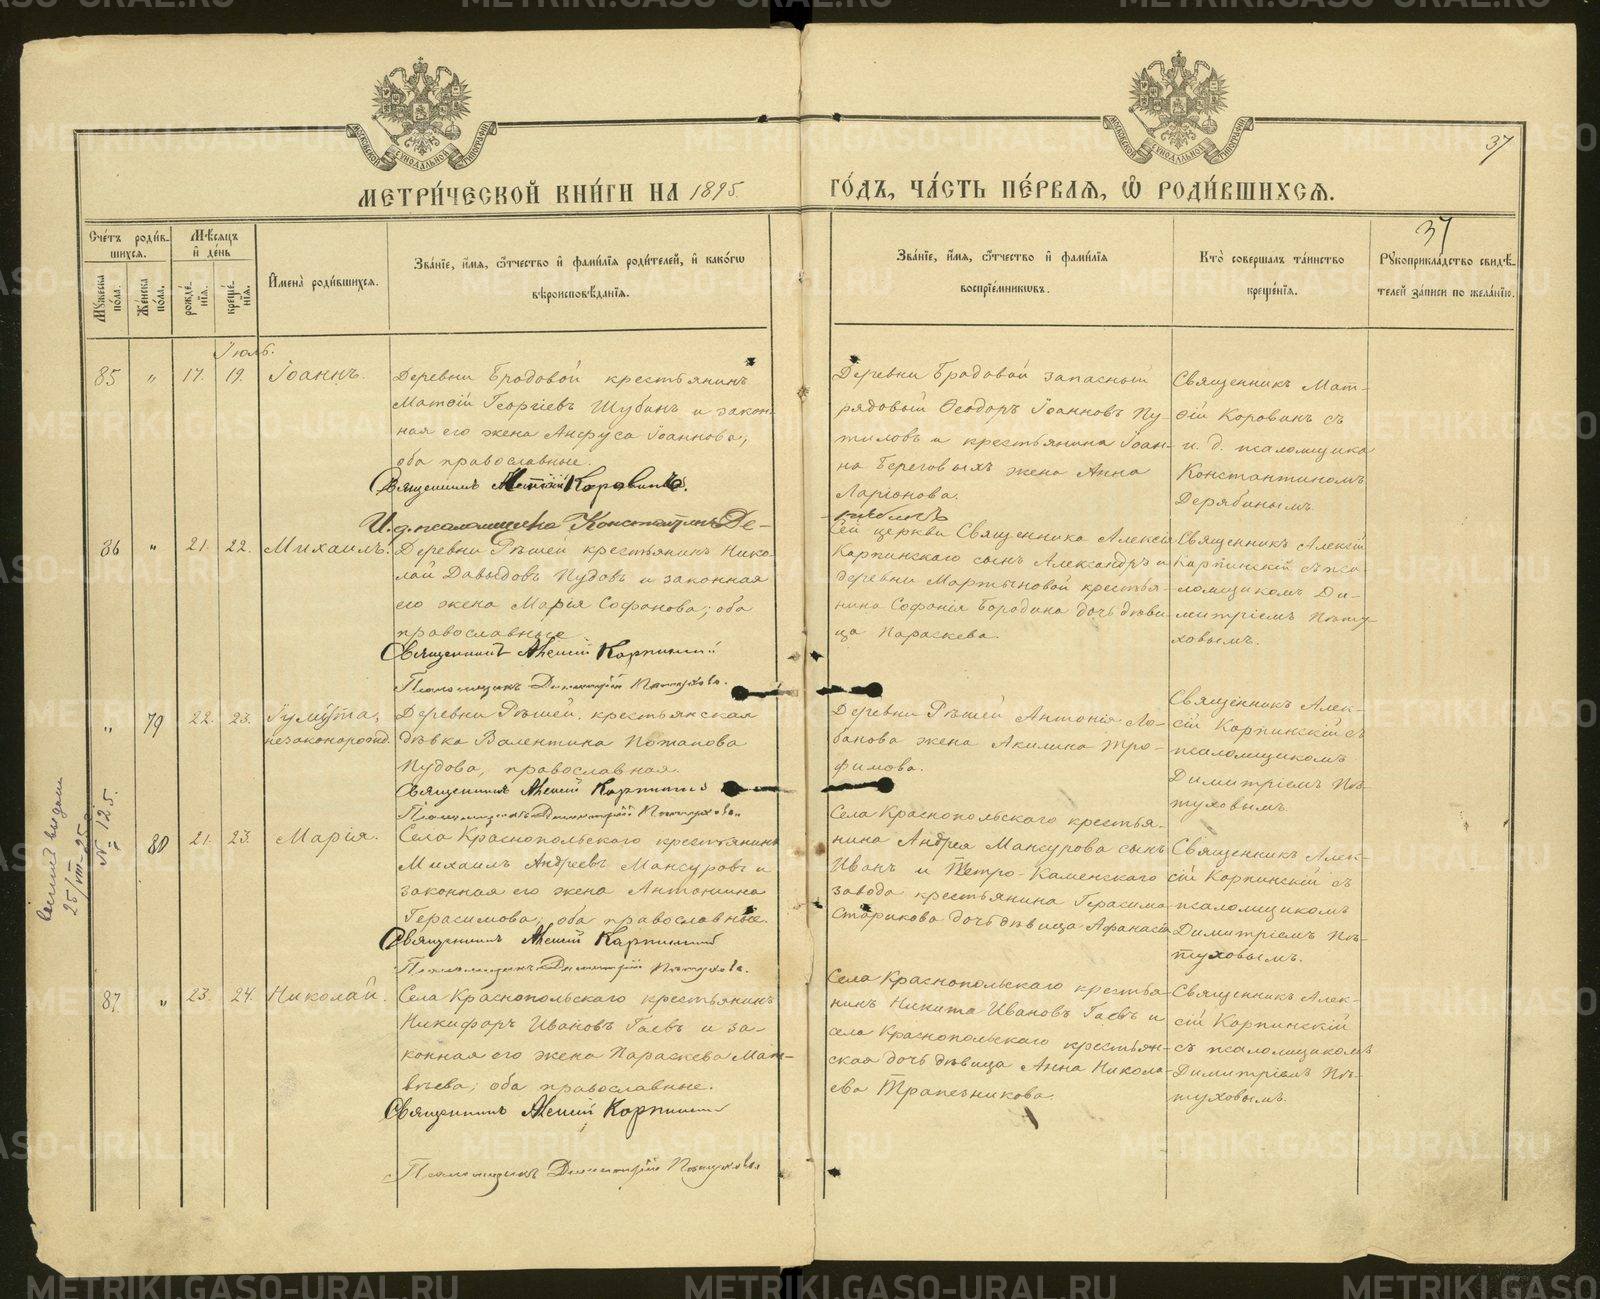 МЕТРИ́ЧЕСКОЙ КНИ́ГИ НА 1895
ГО́ДЪ, ЧА́СТЬ ПЕ́РВАЯ, Ѿ РОДИ́ВШИХСЯ.
37
37
Сче́тъ роди́в-
шихся.
Мѣ́сяцъ
и де́нь
Му́жеска по́ла.
Же́нска по́ла.
рожде́нїя.
креще́нїя.
И́мена̀ роди́вшихся.
Зва́нїе, и́мя, ѻ́тчество и фами́лїя роди́телей, и како́гѡ
вѣроисповѣ́данїя.
Зва́нїе, и́мя, ѻ́тчество и фами́лїя
воспрїе́мникѡвъ.
Кто̀ соверша́лъ та́инство
креще́нїя.
Рꙋкоприкла́дство свидѣ́-
телей за́писи по жела́нїю.
Іюль.
85 " 17. 19. Іоаннъ.
Деревни Бродовой крестьянинъ
Матѳій Георгіевъ Шубинъ и закон-
ная его жена Анфуса Іоаннова,
оба православные.
Священникъ Матѳій Коровинъ.
И. д. псаломщика Константинъ Де-
рябинъ
Деревни Бродовой запасный
рядовый Ѳеодоръ Іоанновъ Пу-
тиловъ и крестьянина Іоан-
на Береговыхъ жена Анна
Ларіонова.
Священникъ Мат-
ѳій Коровинъ съ
и. д. псаломщика
Константиномъ
Дерябинымъ.
86 " 21. 22. Михаилъ.
Деревни Рѣшей крестьянинъ Нико-
лай Давыдовъ Пудовъ и законная
его жена Марія Софонова; оба
православные
Священникъ Алексій Карпинскій
Псаломщикъ Димитрій Пѣтуховъ.
Сей церкви Священника Алексія
Карпинскаго сынъ Александръ и
деревни Мартыновой крестья-
нина Софонія Бородина дочь дѣви-
ца Параскева.
Священникъ Алексій
Карпинскій съ пса-
ломщикомъ Ди-
митріемъ Пѣту-
ховымъ.
" 79 22. 23. Іулитта,
незаконорожд.
Деревни Рѣшей, крестьянская
дѣвка Валентина Потапова
Пудова, православная.
Священникъ Алексій Карпинскій
Псаломщикъ Димитрій Пѣтуховъ.
Деревни Рѣшей Антонія Ло-
банова жена Акилина Тро-
фимова.
Священникъ Алек-
сій Карпинскій съ
псаломщикомъ
Димитріемъ Пѣ-
туховымъ.
выдан
25/VIII-25
№ 125.
80 21. 23. Марія.
Села Краснопольскаго крестьянинъ
Михаилъ Андреевъ Мансуровъ и
законная его жена Антонина
Герасимова; оба православные.
Священникъ Алексій Карпинскій
Псаломщикъ Димитрій Пѣтуховъ.
Села Краснопольскаго крестья-
нина Андрея Мансурова сынъ
Иванъ и Петро-Каменскаго
завода крестьянина Герасима
Старикова дочь дѣвица Афанасія
Священникъ Алек-
сій Карпинскій съ
псаломщикомъ
Димитріемъ Пѣ-
туховымъ.
87 " 23. 24. Николай.
Села Краснопольскаго крестьянинъ
Никифоръ Ивановъ Гаевъ и за-
конная его жена Параскева Мат-
вѣева; оба православные.
Священникъ Алексій Карпинскій
Псаломщикъ Димитрій Пѣтуховъ
Села Краснопольскаго крестья-
нинъ Никита Ивановъ Гаевъ и
села Краснопольскаго крестьян-
ская дочь дѣвица Анна Никола-
ева Трапезникова.
Священникъ Алек-
сій Карпинскій
съ псаломщикомъ
Димитріемъ Пѣ-
туховымъ.